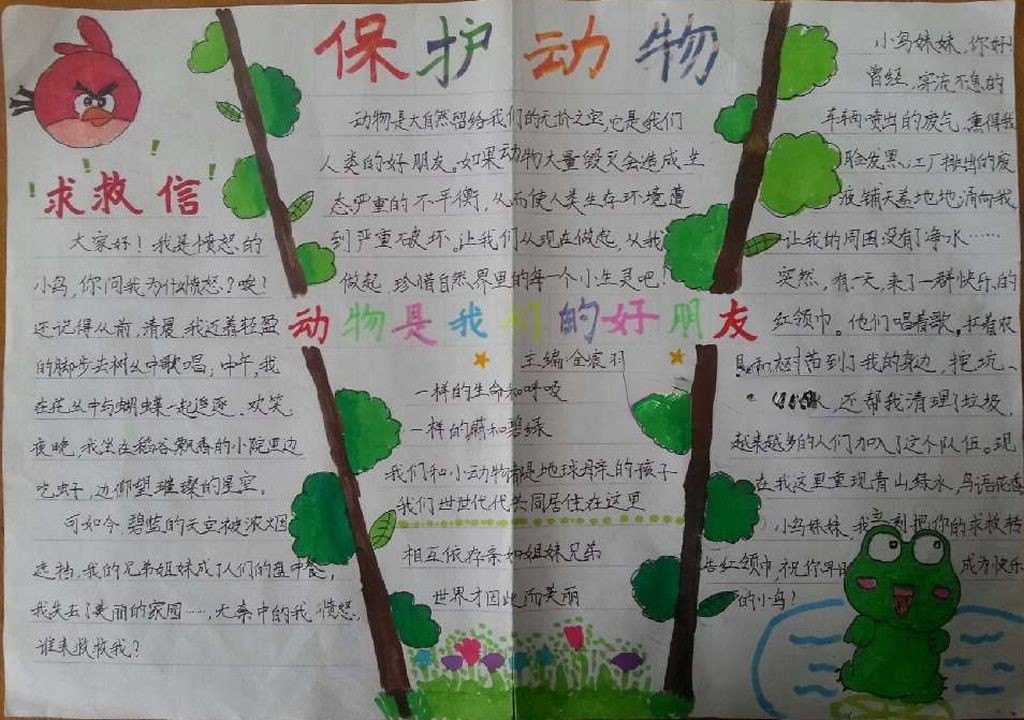 保护动物
求救信
大家好！我是愤怒的
小鸟，你问我为什么愤怒？唉！
还记得从前，清晨，我迈着轻盈
的脚步去树丛中歌唱；中午，我
在花丛中与蝴蝶一起追逐、欢笑。
夜晚，我坐在稻谷飘香的小院里边
吃虫子，边仰望璀璨的星空。
可如今，碧蓝的天空被浓烟
遮挡，我的兄弟姐妹成了人们的盘中餐，
我失去了美丽的家园……，大森中的我愤怒，
谁来救救我？
动物是大自然留给我们的无价之宝，它是我们
人类的好朋友。如果动物大量毁灭会造成生
态严重的不平衡，从而使人类生存环境遭
到严重破坏。让我们从现在做起，从我
做起，珍惜自然界里的每一个小生灵吧！
动物是我们的好朋友
主编：
一样的生命和呼吸
一样的蔚和碧绿
我们和小动物都是地球母亲的孩子
我们世世代代共同居住在这里
相互依存亲如姐妹兄弟
世界才因此而美丽
小鸟妹妹，你好！
曾经，穿流不息的
车辆喷出的废气，熏得我
脸发黑，工厂排出的废
液铺天盖地地涌向我
让我的周围没有了净水……
突然，有一天，来了一群快乐的
红领巾。他们唱着歌。扛着
树苗到了我的身边，挖坑、
，还帮我清理了垃圾，
越来越多的人们加入了这个队伍。现
在我这里重现青山绿水，鸟语花香
小鸟妹妹，我立刻把你的求救转
告红领巾，祝你早 成为快乐
的小鸟！